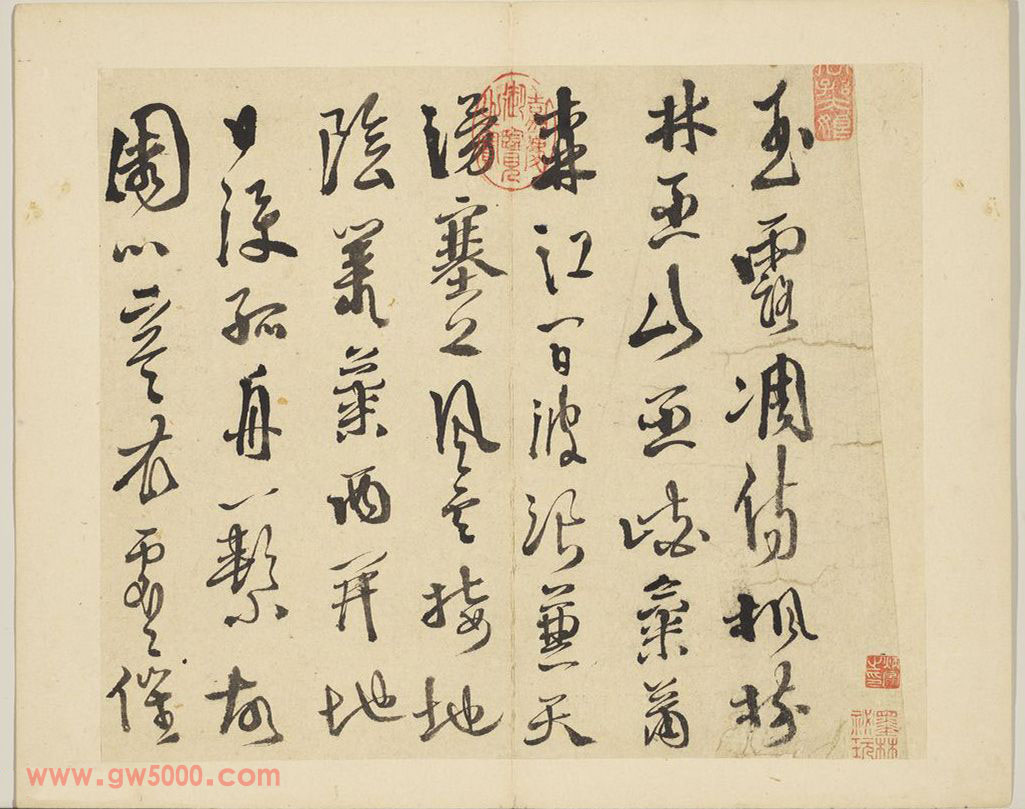 玉露凋傷楓樹
林巫山巫峽氣蕭
森江間波浪兼天
湧塞上風雲接地
陰叢菊兩開他
日淚孤舟一繫故
園心寒衣處處催
嘉慶御覽之寶
墨林祕玩
www.gw5000.com